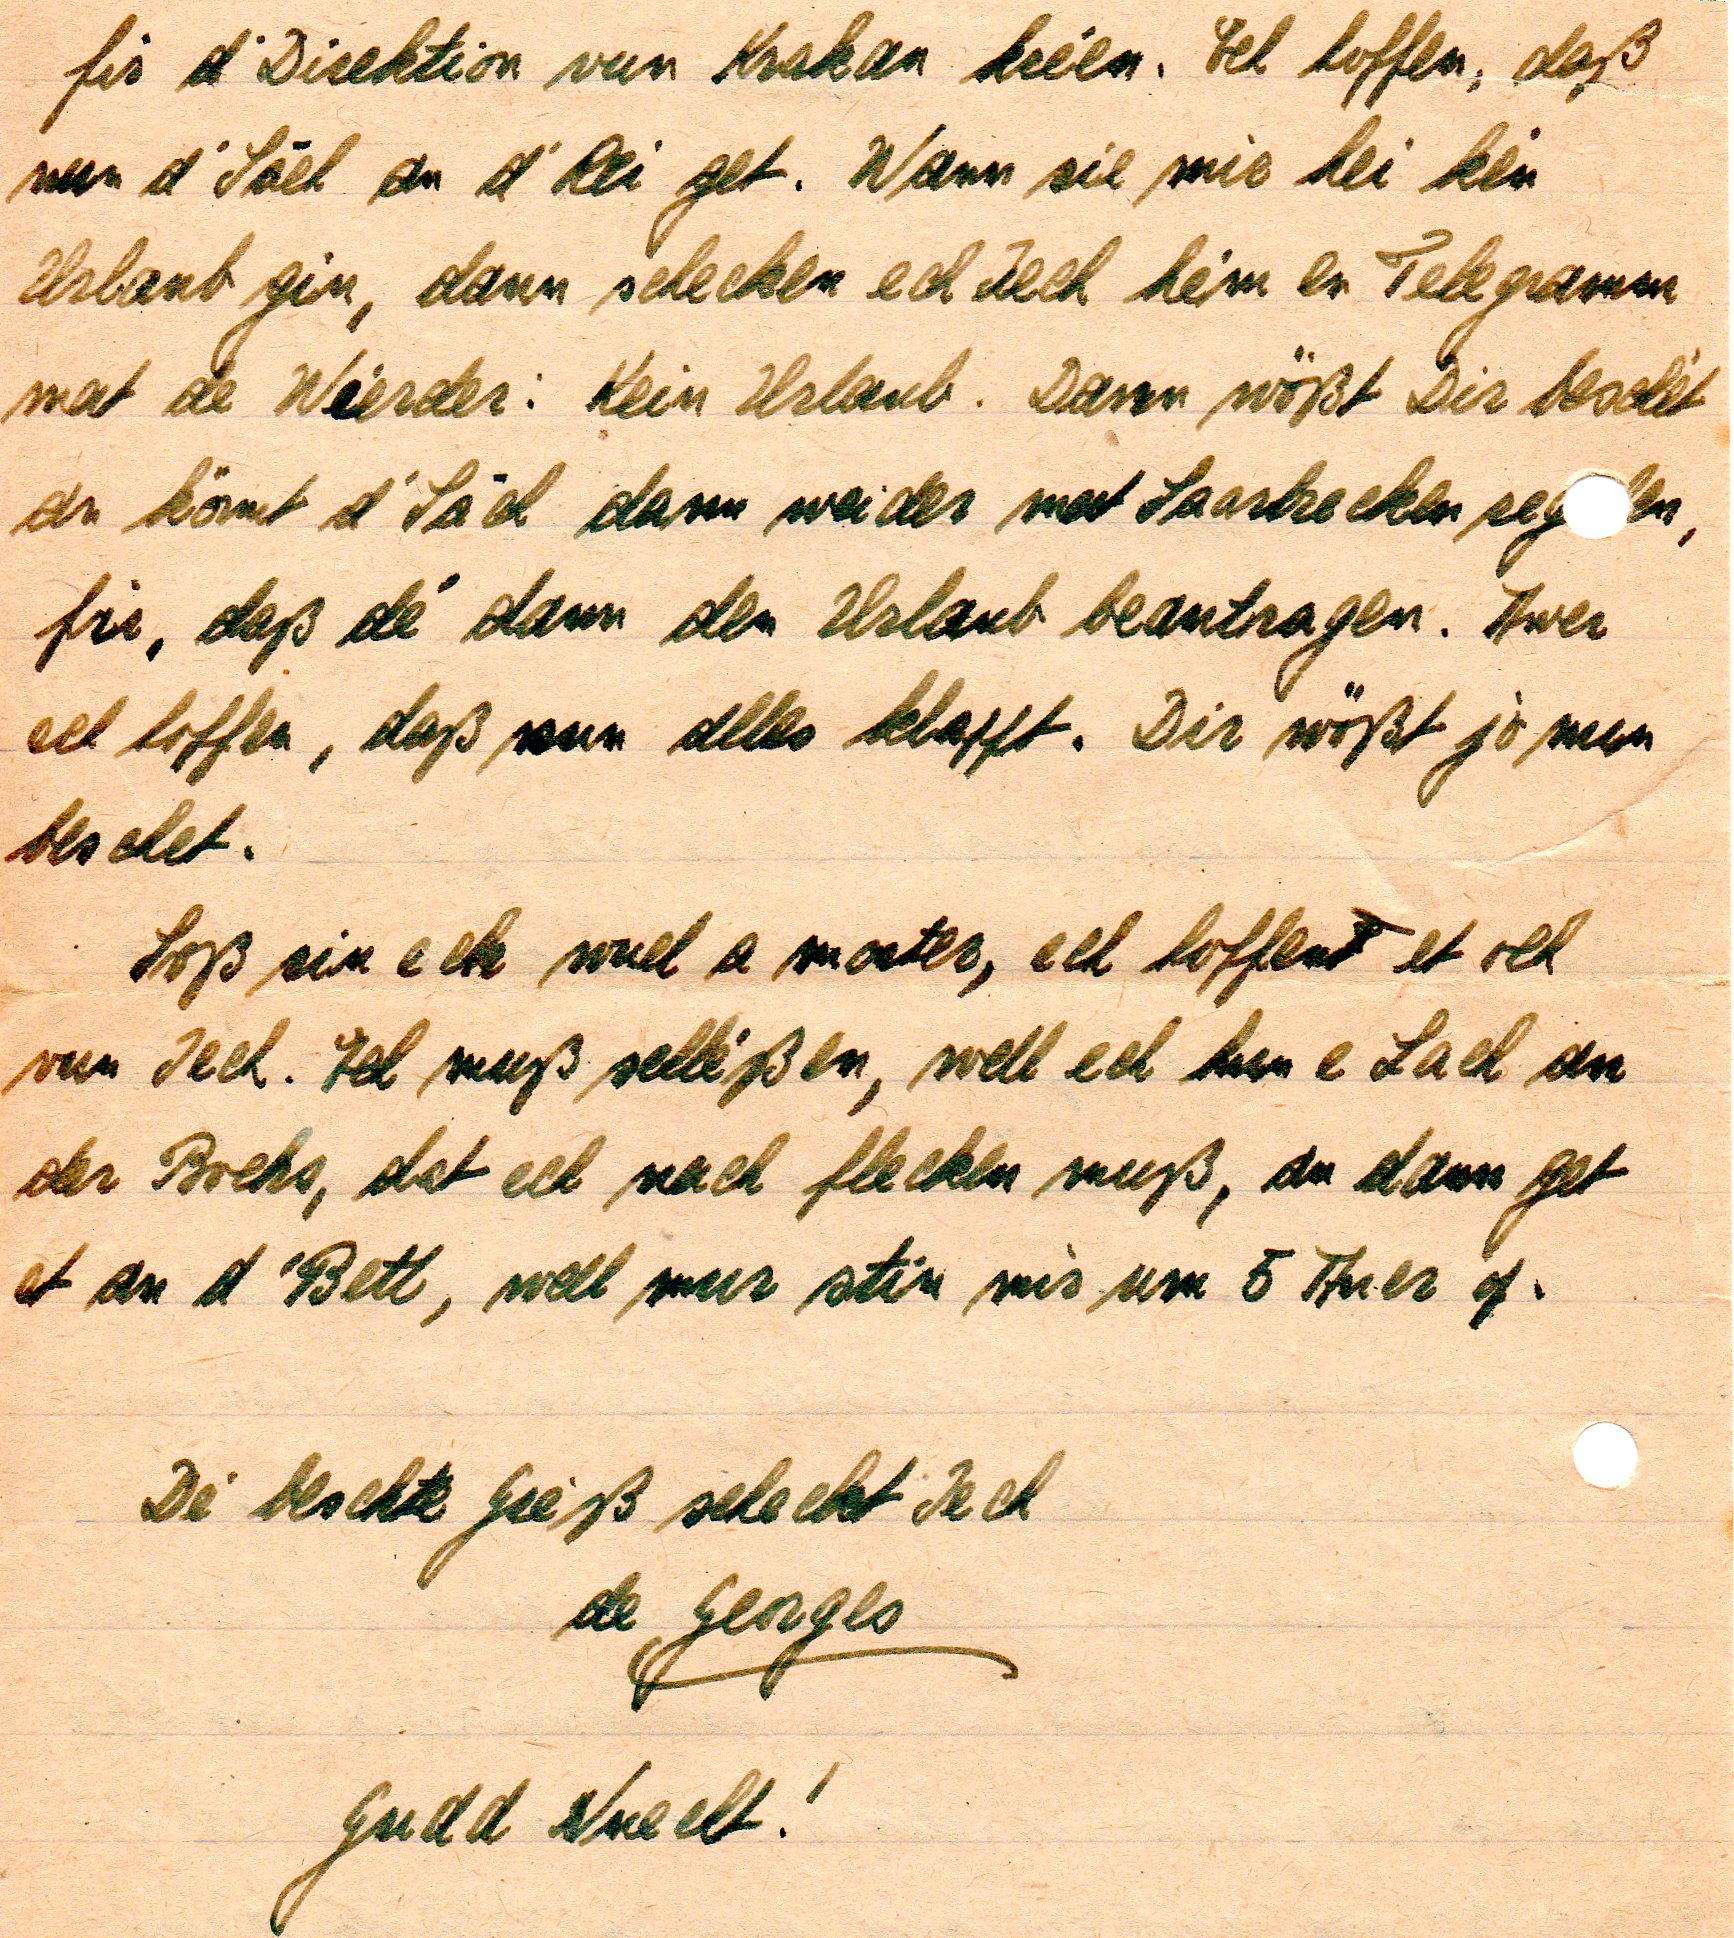 fir d' Direktion vun Krakau kréien. Ech hoffen, daß
nun d' Säch an d' Rei get. Wann sie mir hei kén
Urlaub gin, dann schecken ech Iech hém en Telegramm
mat de Wierder: Kein Urlaub. Dann wößt Dir beschét
an könnt d' Säch dann weider mat Saarbrecken reg len,
fir, daß dé dann den Urlaub beantragen. Awer
ech hoffen, daß nun alles klappt. Dir wößt jo nun
beschet.
Soß sin ech nach a monter, ech hoffen et och
vun Iech. Ech muß schléßen, well ech hun e Lach an
der Bocks, dat ech nach flecken muß, an dann get
et an d' Bett, well mur stin mir um 5 Auer of.
Dé beschte Gréß scheckt Iech
de Georges
Gudd Nuecht!